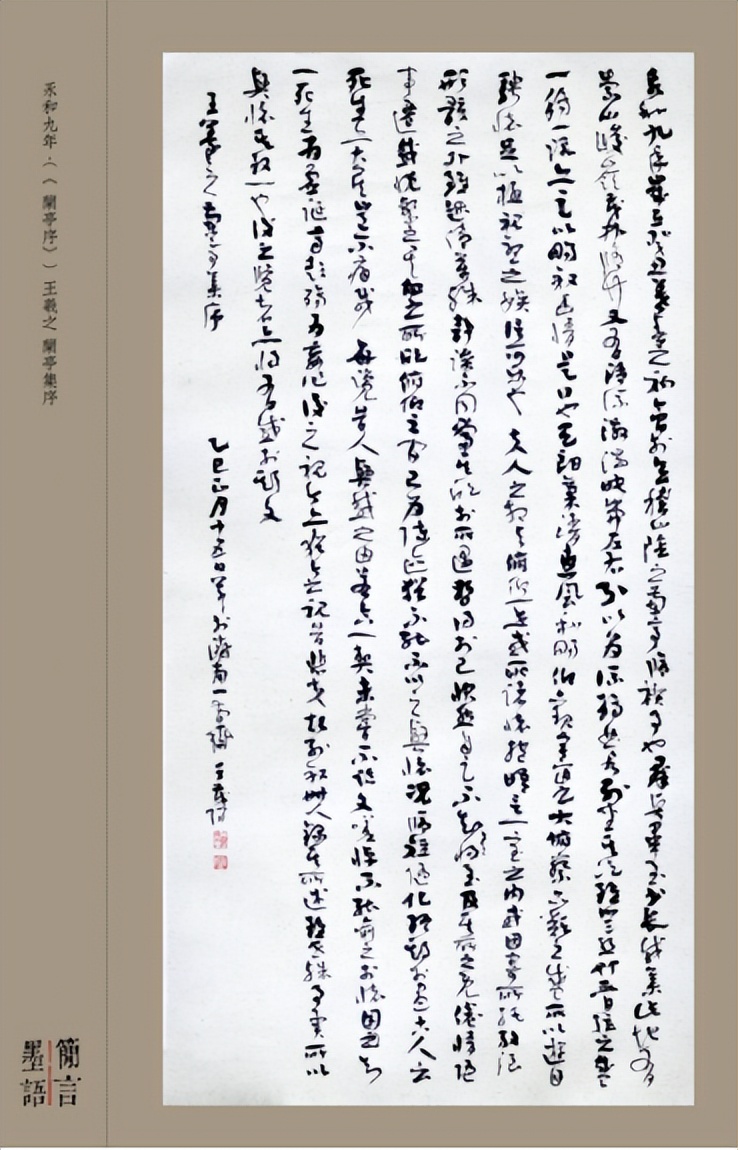 永和九年·(《蘭亭序》) 王羲之 蘭亭集序
永和九年歲在癸丑暮春之初會於會稽山陰之蘭亭脩禊事也羣賢畢至少長咸集此地有
崇山峻嶺茂林脩竹又有清流激湍映帶左右引以為流觴曲水列坐其次雖無絲竹管弦之盛
一觴一詠亦足以暢敘幽情是日也天朗氣清惠風和暢仰觀宇宙之大俯察品類之盛所以遊目
騁懷足以極視聽之娛信可樂也 夫人之相與俯仰一世或取諸懷抱晤言一室之內或因寄所託放浪
形骸之外雖趣舍萬殊靜躁不同當其欣於所遇暫得於己快然自足不知老之將至及其所之既倦情隨
事遷感慨繫之矣向之所欣俯仰之間已為陳迹猶不能不以之興懷況脩短隨化終期於盡古人云
死生亦大矣豈不痛哉 每覽昔人興感之由若合一契未嘗不臨文嗟悼不能喻之於懷固知
一死生為虛誕齊彭殤為妄作後之視今亦猶今之視昔悲夫故列敘時人錄其所述雖世殊事異所以
興懷其致一也後之覽者亦將有感於斯文
王羲之蘭亭集序 乙巳正月十五日 於濟南一 齋 王
簡言
墨語